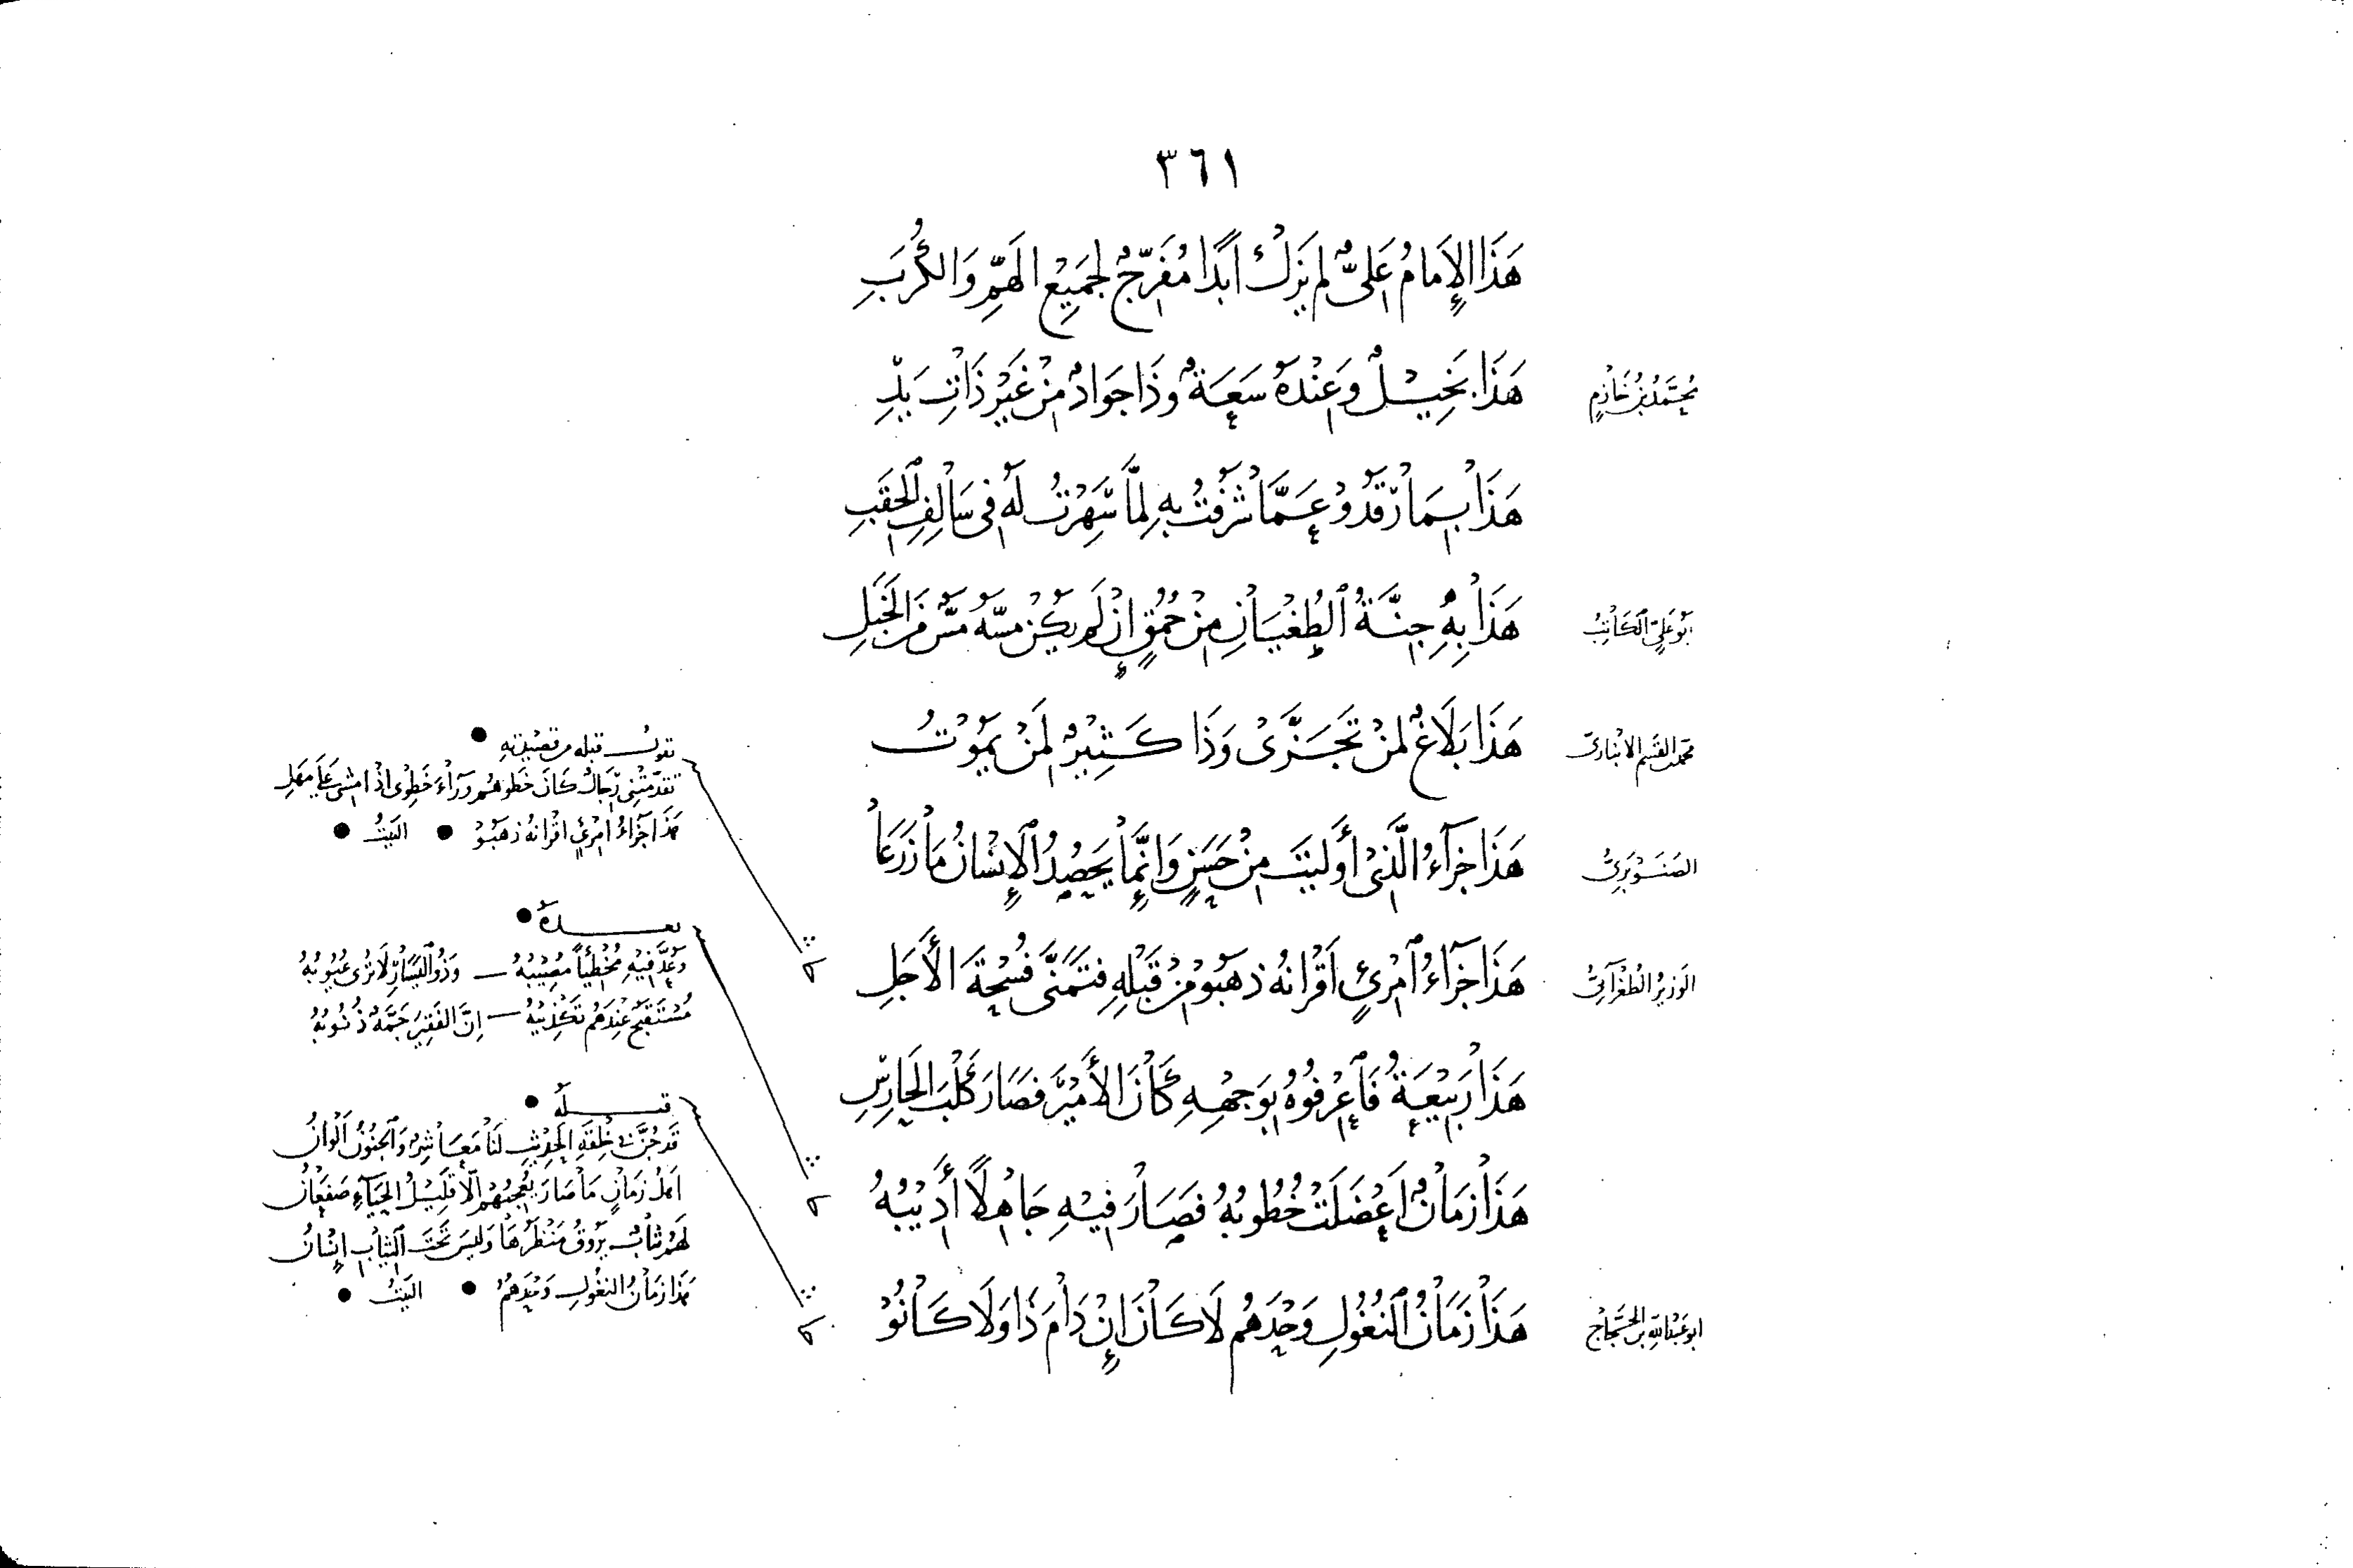 ٣٦١
هَذَا الإِمَامُ عَلِيٌّ لم يَزَلْ أَبَدًا مُفَرِّجٌ لجَمِيْعِ الهَمِّ وَالكُرَبِ
مُحَمَّدُ بْنُ خَازِمٍ
هَذَا بَخِيْلٌ وَعِنْدَهُ سَعَةٌ وَذَا جَوَادٌ مِنْ غَيْرِ ذَاتِ يَدِ
هَذَا بِمَا رَقَدُوْ عَمَّا شَرُفْتُ بِهِ لِمَا سَهِرْتُ لَهُ فِي سَالِفِ الحُقَبِ
أبُو عَلِيٍّ الكَاتِبُ
هَذَا بِهِ جِنَّةُ الطُغْيَانِ مِنْ حُمُقٍ إِنْ لَم يَكُنْ مَسَّهُ مَسٌّ مِنَ الخَبَلِ
محمد بن القسم الانبارى
هَذَا بَلَاغٌ لمَنْ تَجَزَّىْ وَذَا كَثِيْرٌ لمَنْ يَمُوْتُ
الصَنَوْبَرِيُّ
هَذَا جَزَآءُ الَّذِيْ أَوْلَيْتَ مِنْ حَسَنٍ وَإِنَّمَا يَحصِدُ الإِنْسَانُ مَا زَرَعَا
الوَزِيْرُ الطُغْرَآئِيُّ
هَذَا جَزَآءُ امْرِئٍ اَقْرَانُهُ ذهَبُوْ مِنْ قَبْلِهِ فتَمَنَّى فُسْحَةَ الأَجَلِ
هَذَا رَبِيْعَةُ فَاعْرِفُوْهُ بِوَجْهِهِ كَانَ الأَمِيْرَ فصَارَ كَلْبَ الحَارِسِ
هَذَا زمَانٌ اَعْضَلَتْ خُطُوبُهُ فصَارَ فِيْهِ جَاهِلًا أَدِيْبُهُ
ابو عَبْدِ اللهِ بن الحَجَّاجْ
هَذَا زَمَانُ النُغُوْلِ وَحْدَهُم لَا كَانَ إِنْ دَامَ ذَا وَلَا كَانُوْا
يقولُ قبله من قصيدته
تقدَّمتْنِي رِجَالٌ كَانَ خَطْوهُم وَرَآءَ خَطْوِى اذْ امْشِى عَلَى مَهَلِ
هَذَا جَزَآءُ امْرِئٍ اقْرَانهُ ذهَبُوْ البَيْتُ
بعــدهُ
وَعُدَّ فِيْهِ مُخْطِيًا مُصِيْبُهُ — وَذُو اليَسَارِ لَا تُرَى عُيُوبُهُ
مُسْتَقْبَحٌ عِنْدَهُم تَكْذِيْبُهُ — إِنَّ الفَقِيْرَ جَمَّةٌ ذُنُوبُهُ
قبــلهُ
قَد جُنَّ خِلقَةِ الحَدِيْثِ لَنَا مَعَاشِرٌ وَالجُنُوْنُ اَلْوَانُ
اَهْلُ زمَانٍ مَا صَارَ يُعْجِبُهُمْ اِلّا قَلِيْلُ الحَيَآءِ صَفْعَانُ
لَهُم ثيَابٌ يَرُوْقُ مَنْظَرُهَا وَلَيْسَ تَحْتَ الثيَابِ إِنْسَانُ
هَذَا زمَانُ النغُوْلِ وَحْدَهُمْ البَيْتُ